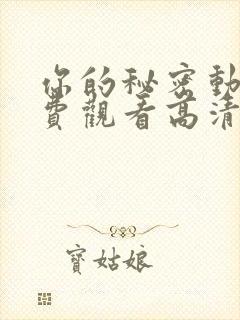 你的秘密動
費觀看高清
寶姑娘